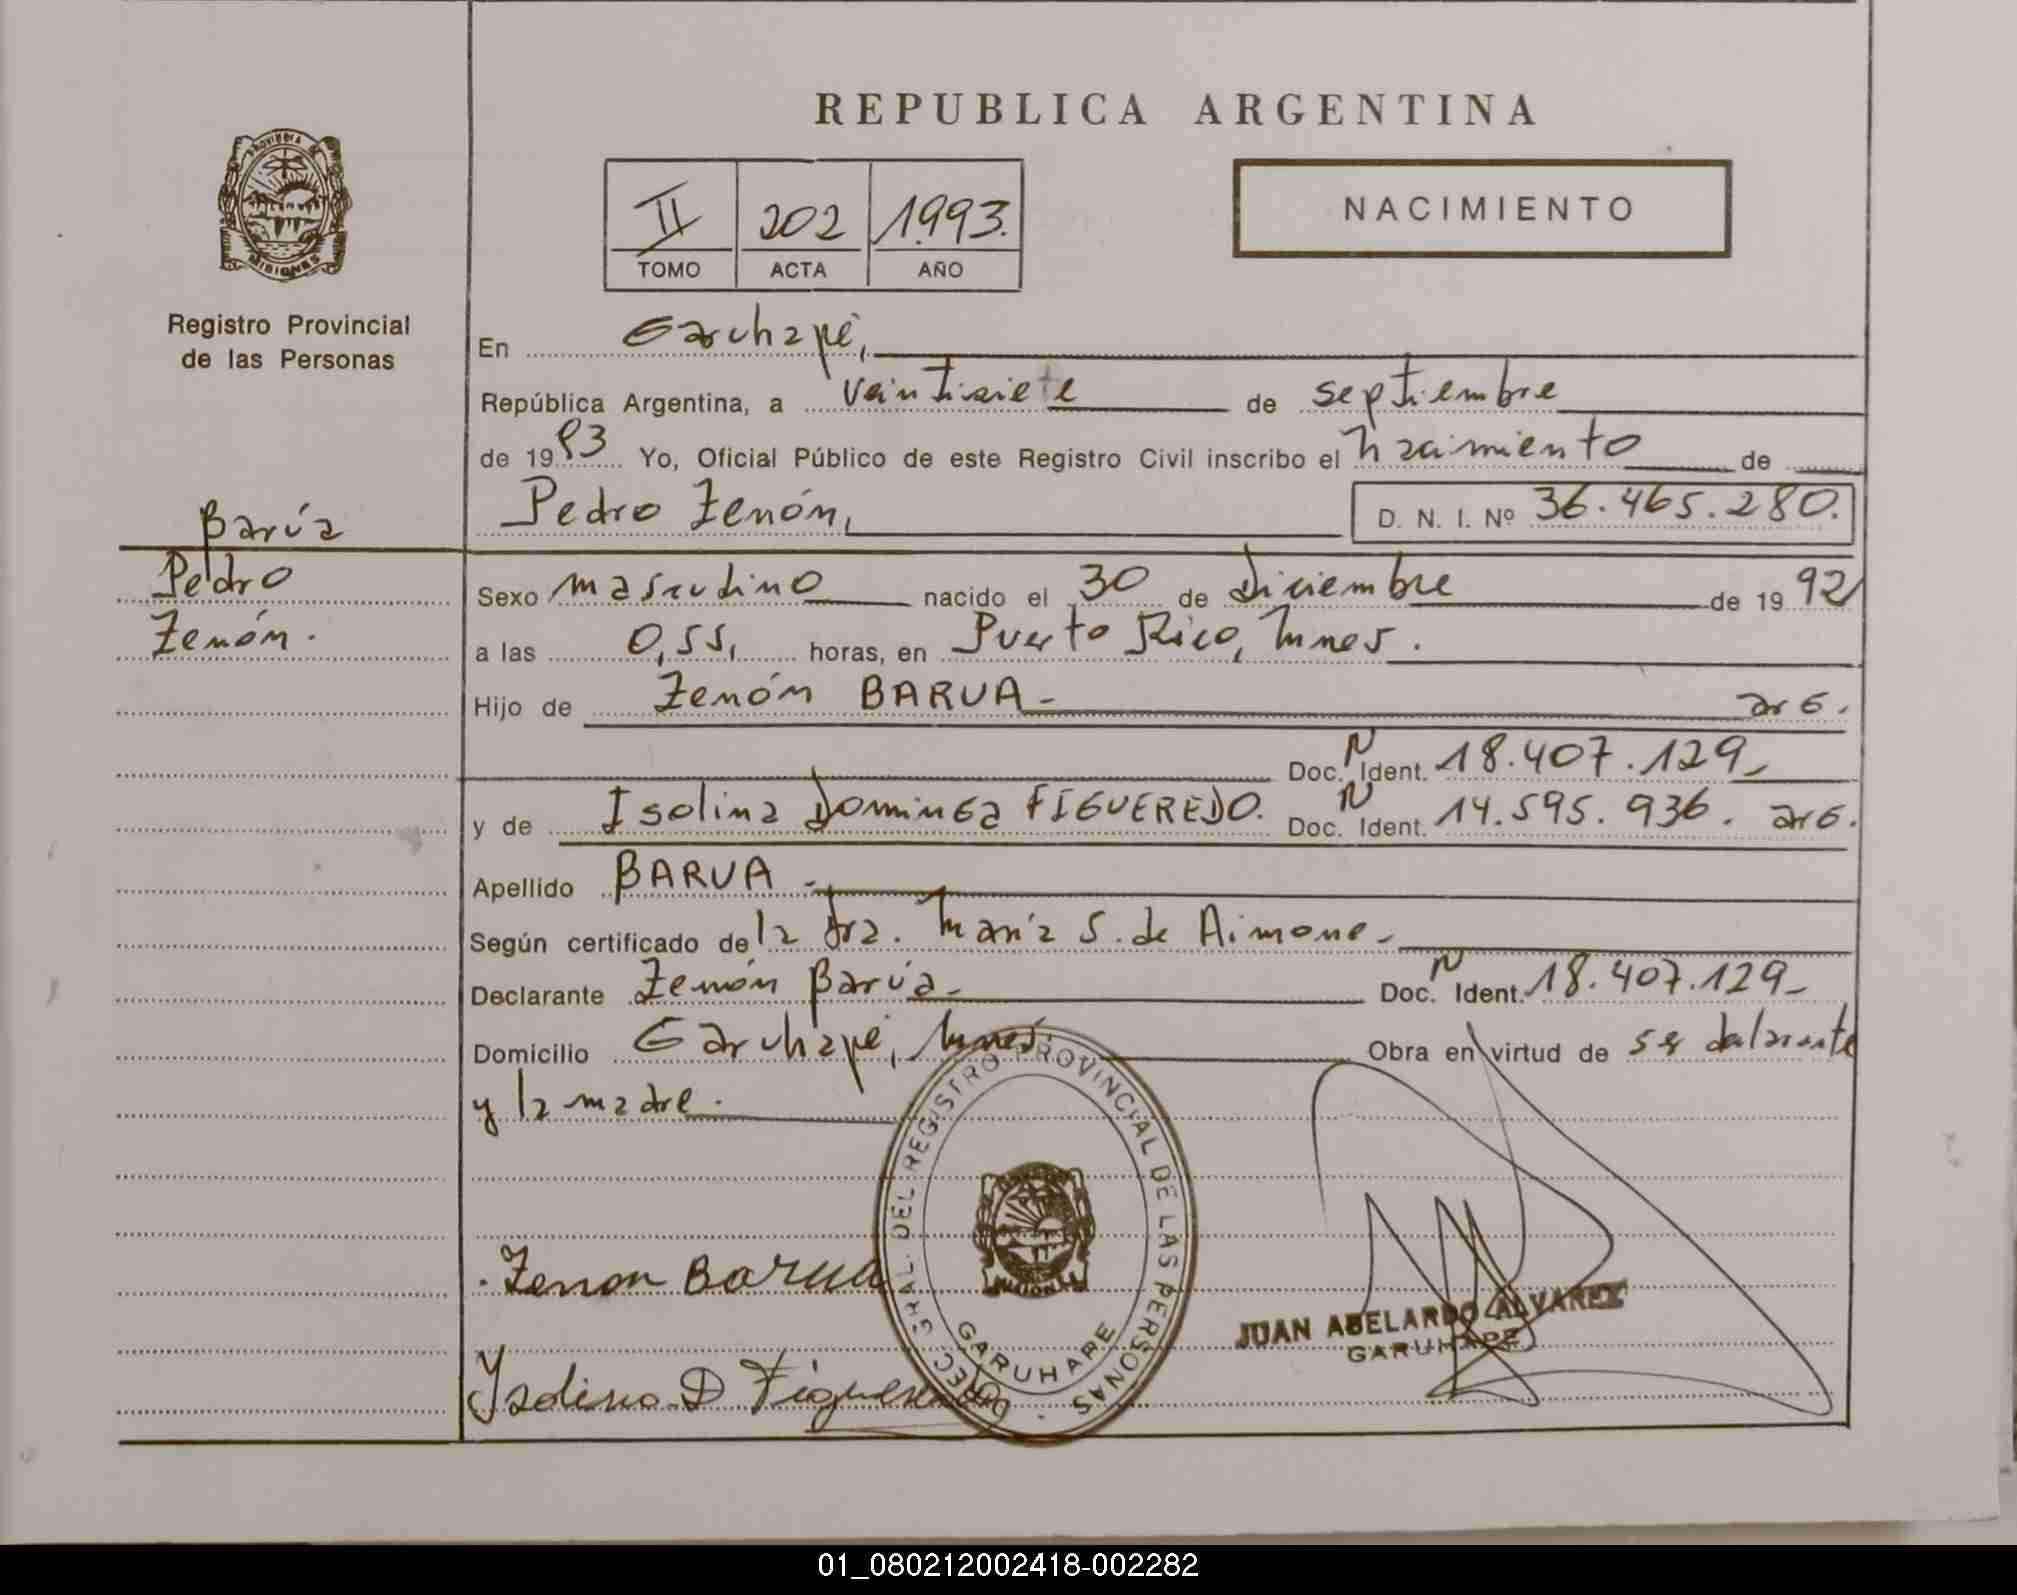 REPUBLICA ARGENTINA
PROVINCIA DE MISIONES
Registro Provincial
de las Personas
II 202 1993.
TOMO ACTA AÑO
NACIMIENTO
En Garuhapé,
República Argentina, a veintisiete de septiembre
de 1993 Yo, Oficial Público de este Registro Civil inscribo el nacimiento de
Pedro Zenón, D. N. I. Nº 36.465.280.
Barúa
Pedro
Zenón.
Sexo masculino nacido el 30 de diciembre de 1992
a las 0,55, horas, en Puerto Rico, Mnes.
Hijo de Zenón BARUA- arg.
Doc. N Ident. 18.407.129-
y de Isolina Dominga FIGUEREDO. Doc. N Ident. 14.595.936. arg.
Apellido BARUA-
Según certificado de la dra. María S. de Aimone-
Declarante Zenón Barúa- Doc. N Ident. 18.407.129-
Domicilio Garuhapé, Mnes. Obra en virtud de ser declarante
y la madre.
DIREC. GRAL. DEL REGISTRO PROVINCIAL DE LAS PERSONAS
GARUHAPE
Zenon Barua
Isolina D Figueredo
JUAN ABELARDO ALVAREZ
GARUHAPE
01_080212002418-002282